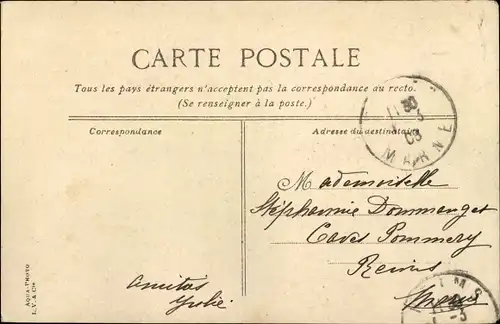 CARTE POSTALE
Tous les pays étrangers n'acceptent pas la correspondance au recto.
(Se renseigner à la poste.)
Correspondance
Adresse du destinataire
MARNE
Mademoiselle
Stéphanie Dommanget
Caves Pommery
Reims
Marne
amitas
AQUA-PHOTO
L.V. & Cie